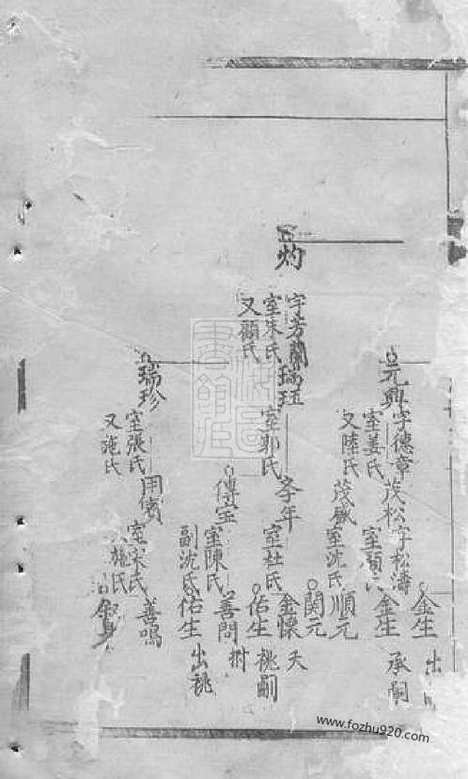 金生 出
元典 字德章 室姜氏 又陸氏
茂松 字松濤
金生 承嗣
茂 室沈氏
順元
関元
灼 字芳蘭 室朱氏 又顧氏
瑞珏 室郭氏
年 室杜氏
金懷 夭
佑生 祧嗣
傳宝 室陳氏 副沈氏
善問
佑生 出祧
瑞珍 室張氏 又施氏
用賓 室宋氏 施氏
善鳴
www.fozhu920.com